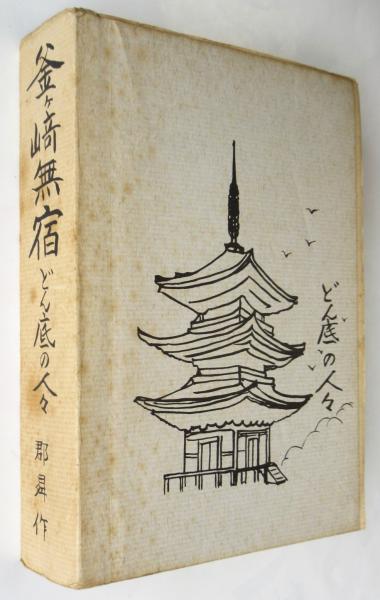 釜ヶ崎無宿
どん底の人々
郡昇作
どん底の人々